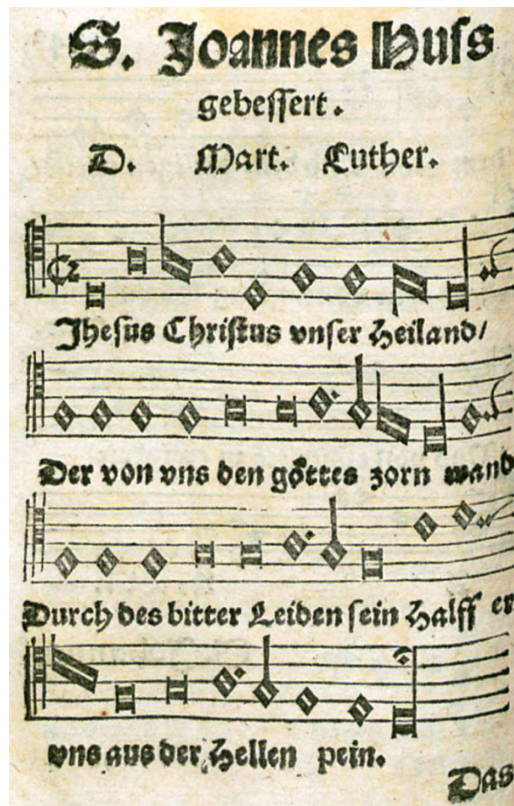 S. Joannes Huſs
gebeſſert.
D. Mart. Luther.
Jheſus Chriſtus vnſer Heiland/
Der von vns den gottes zorn wand
Durch des bitter Leiden ſein Halff er
vns aus der Hellen pein.
Das